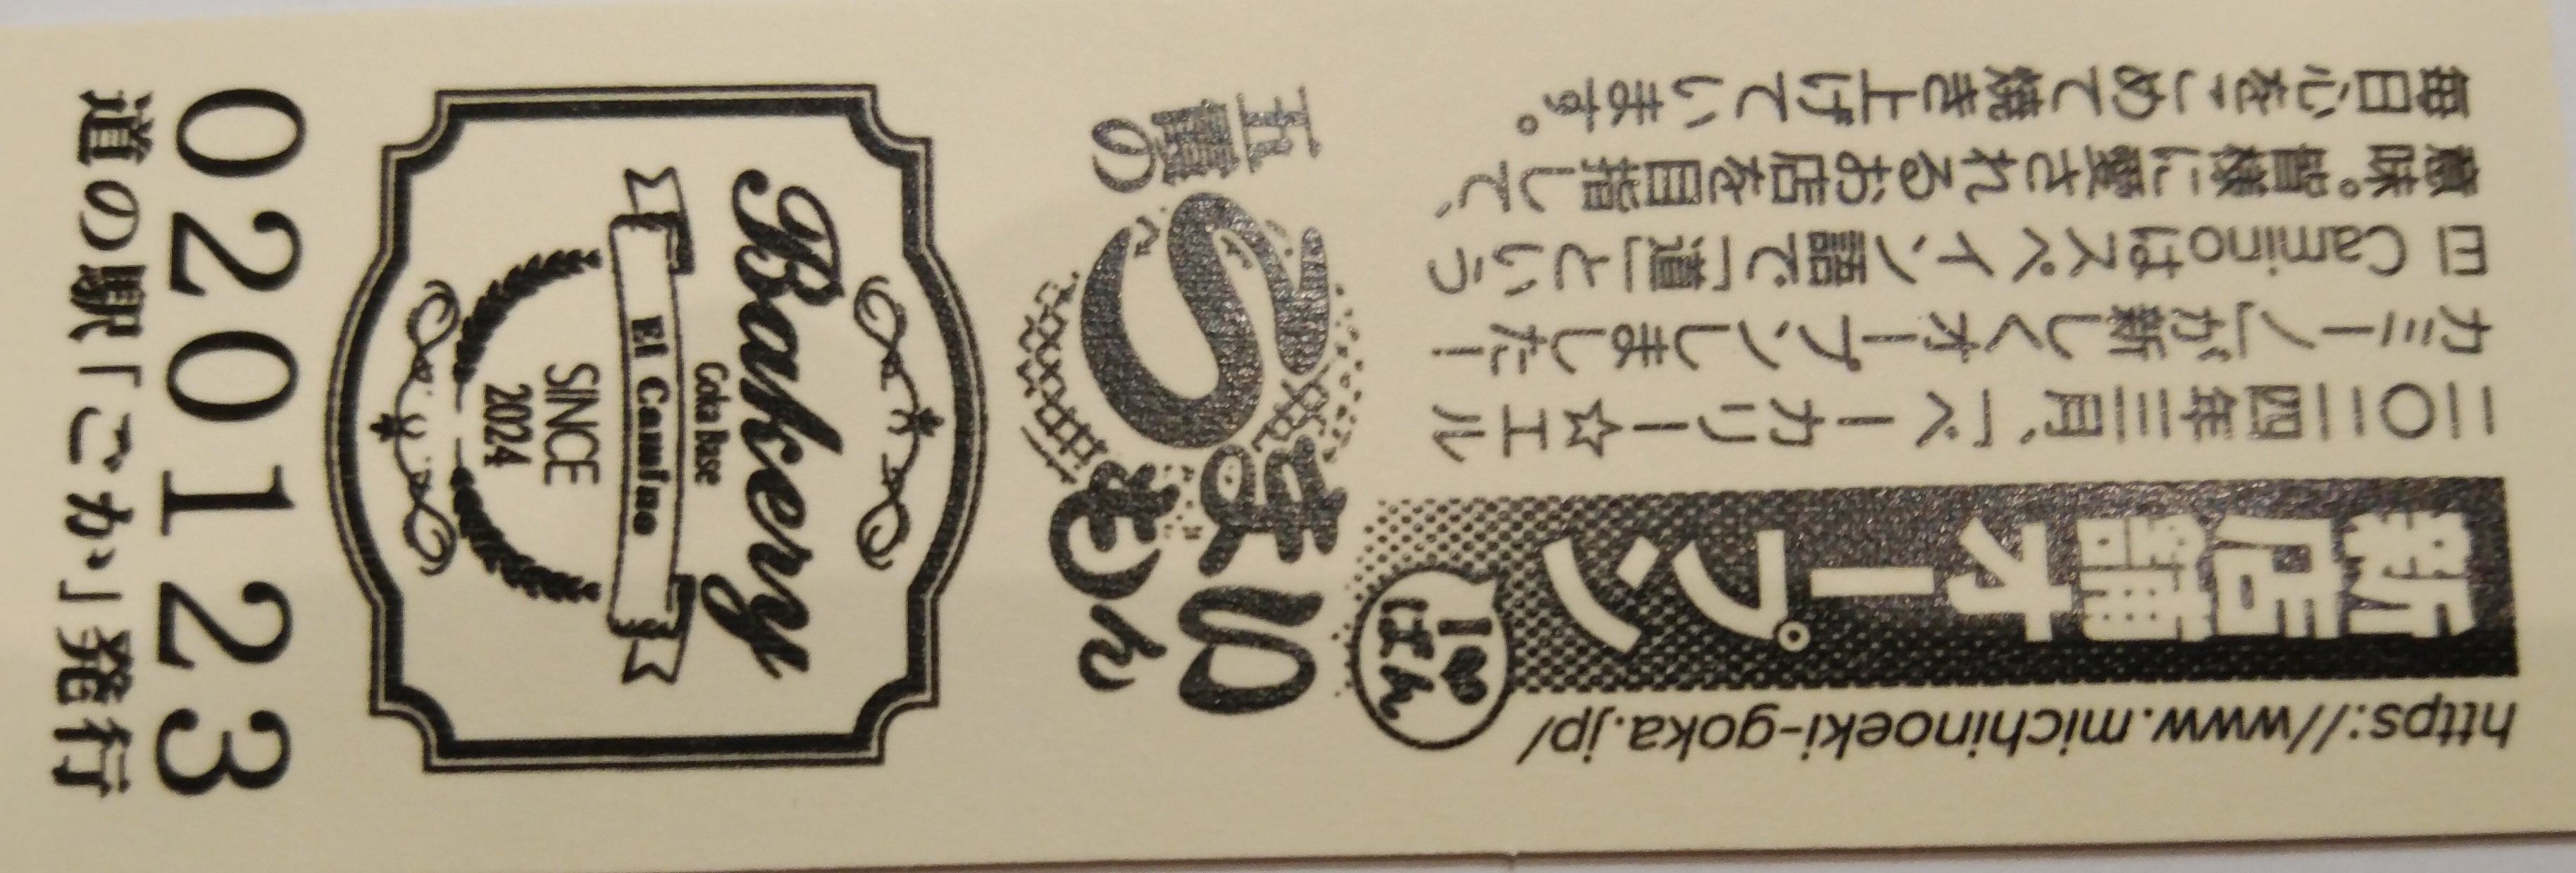 https://www.michinoeki-goka.jp/
新店舗オープン
I♥ぱん
二〇二四年三月、「ベーカリー☆エル
カミーノ」が新しくオープンしました！
El Caminoはスペイン語で「道」という
意味。皆様に愛されるお店を目指して、
毎日心をこめて焼き上げています。
五霞の
うまいもん
Bakery
Goka Base
El Camino
SINCE
2024
020123
道の駅「ごか」発行